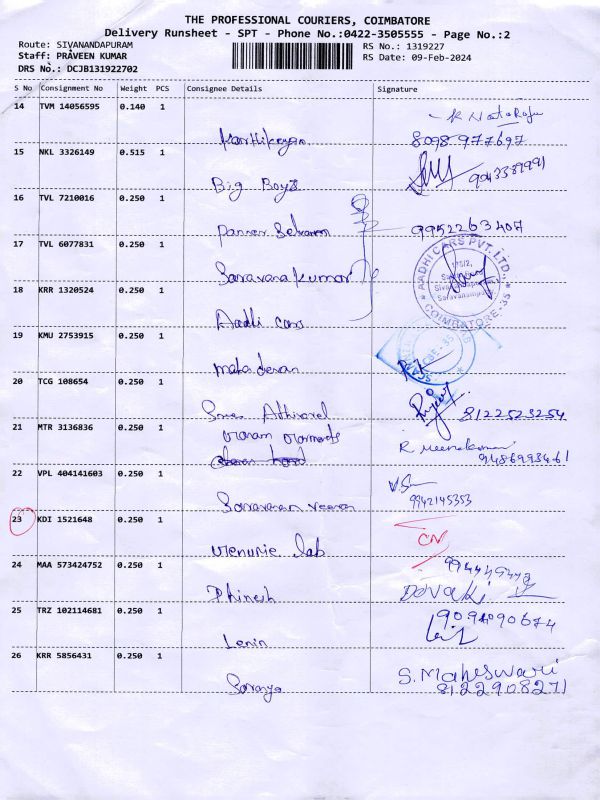 THE PROFESSIONAL COURIERS, COIMBATORE
Delivery Runsheet - SPT - Phone No.:0422-3505555 - Page No.:2
Route: SIVANANDAPURAM
RS No.: 1319227
Staff: PRAVEEN KUMAR
RS Date: 09-Feb-2024
DRS No.: DCJB131922702
S No Consignment No Weight PCS Consignee Details Signature
14 TVM 14056595 0.140 1
K Nataraju
Karthikeyan 8098977697
15 NKL 3326149 0.515 1
Big Boys
16 TVL 7210016 0.250 1
Panner Selvam 9952263407
17 TVL 6077831 0.250 1
Saravanakumar
AADHI CARS PVT. LTD.
COIMBATORE-35
18 KRR 1320524 0.250 1
Aadhi cars
19 KMU 2753915 0.250 1
Mahadevan
20 TCG 108654 0.250 1
8122523254
21 MTR 3136836 0.250 1
R Meenakumari
9486993461
22 VPL 404141603 0.250 1
9942145353
23 KDI 1521648 0.250 1
CN
lab
24 MAA 573424752 0.250 1
Dhinesh
DEVAKI
25 TRZ 102114681 0.250 1
9094090674
Lenin
26 KRR 5856431 0.250 1
S. Maheswari
Saranya 8122908271